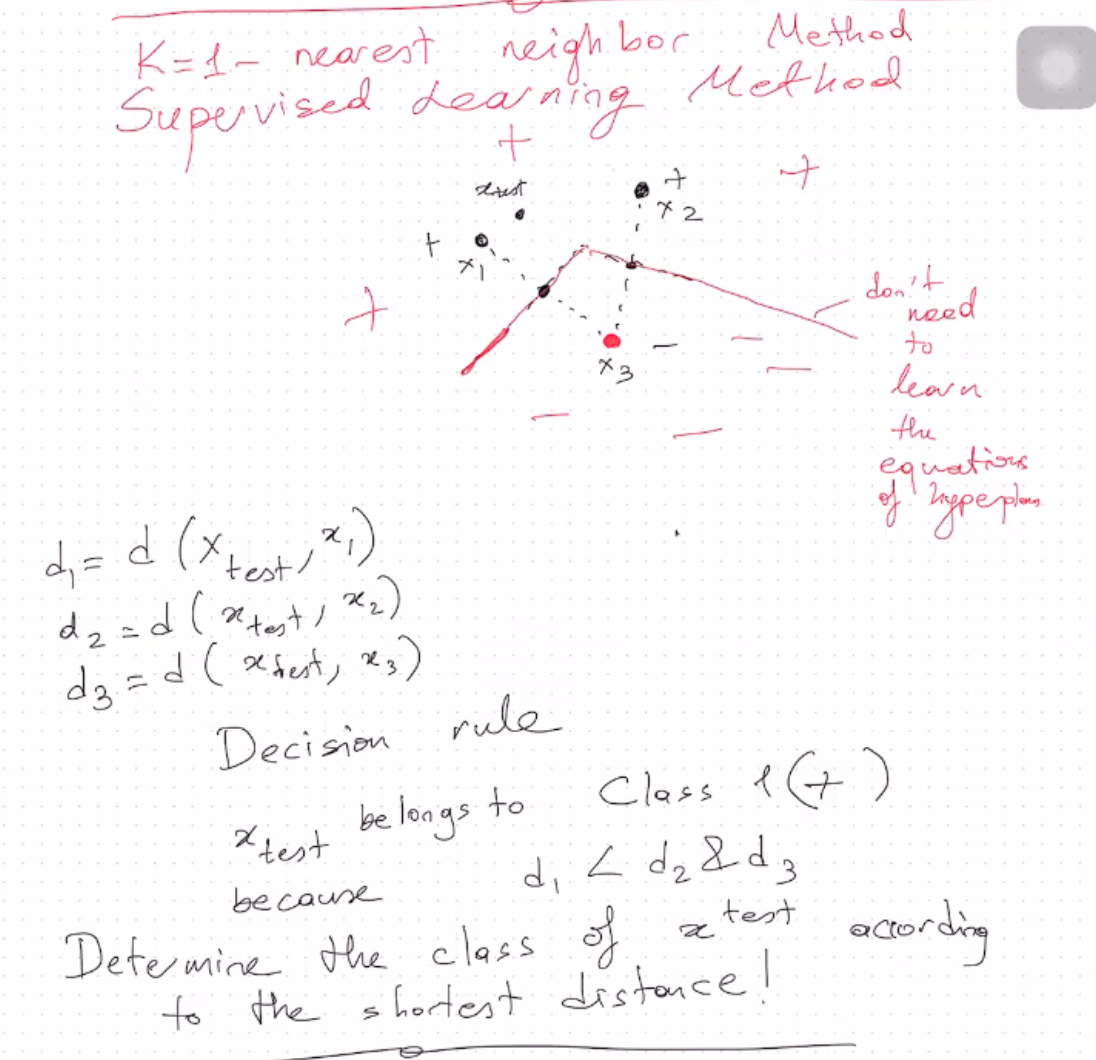 K=1- nearest neighbor Method
Supervised Learning Method
+
+
xtest
+
x2
+
x1
+
-
x3
-
-
-
-
don't
need
to
learn
the
equations
of hyperplans
d1 = d (xtest, x1)
d2 = d (xtest, x2)
d3 = d (xtest, x3)
Decision rule
xtest belongs to Class 1 (+)
because d1 < d2 & d3
Determine the class of x^test according
to the shortest distance!